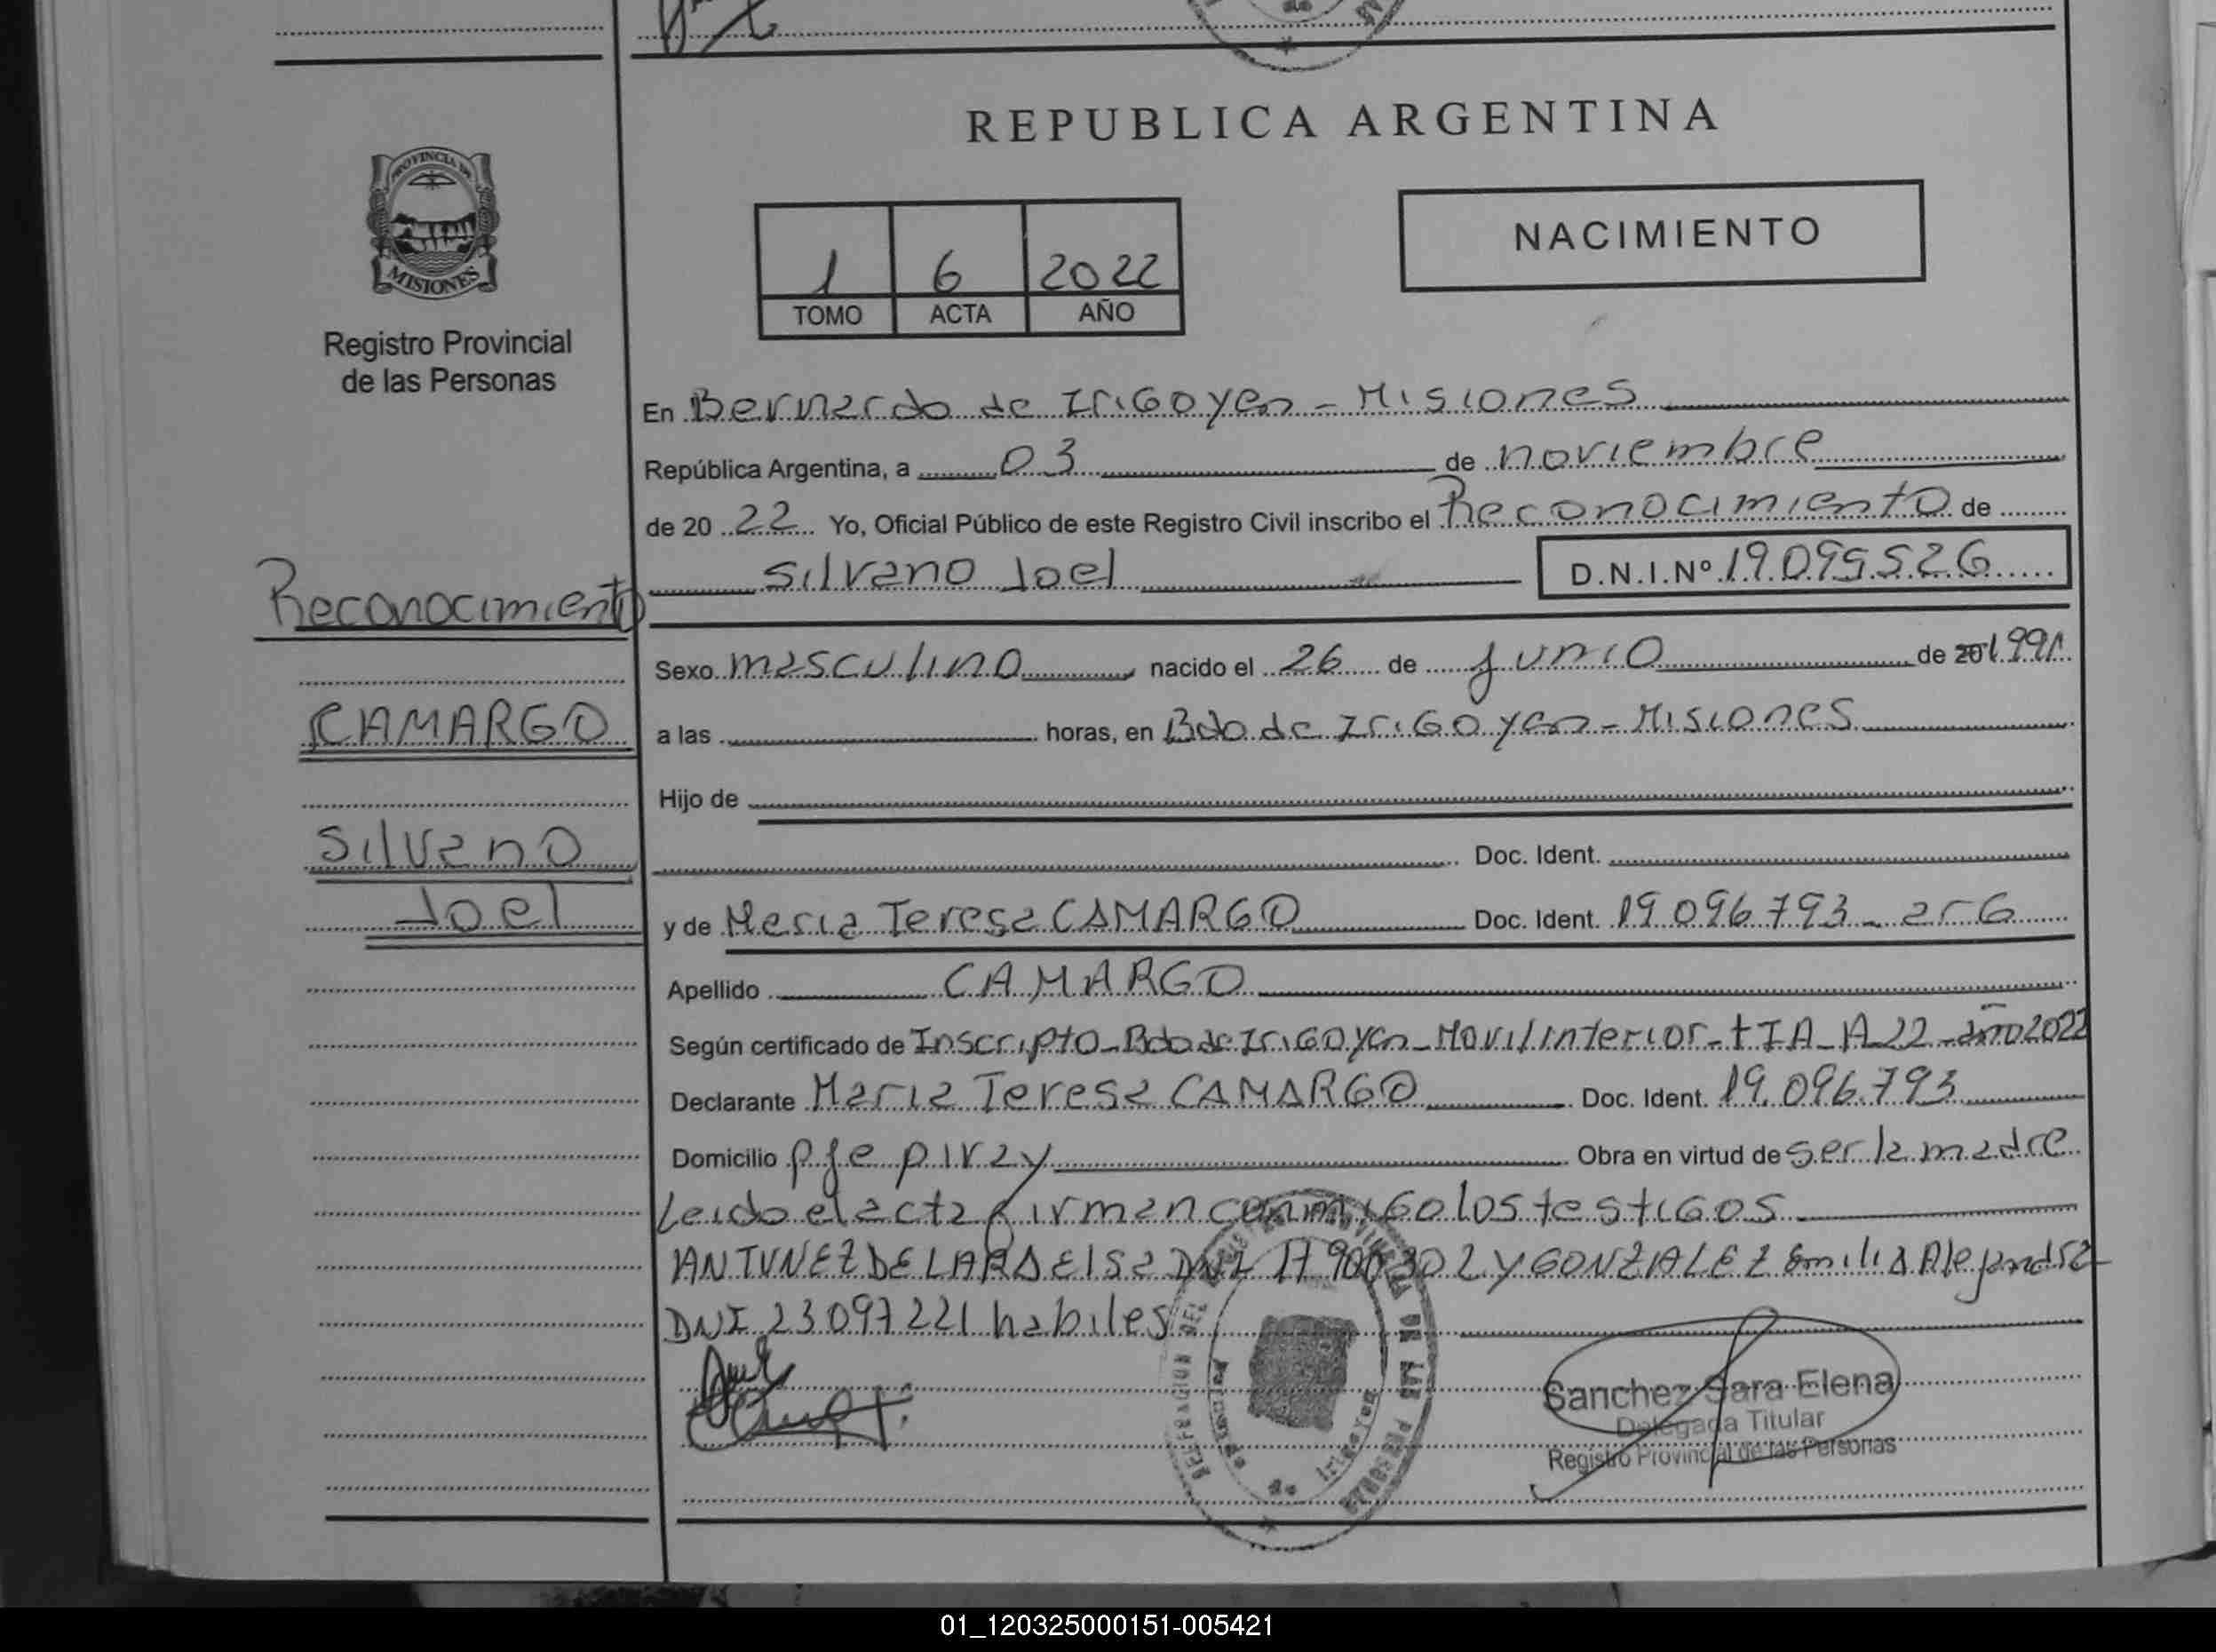 REPUBLICA ARGENTINA
PROVINCIA DE
MISIONES
Registro Provincial
de las Personas
1 6 2022
TOMO ACTA AÑO
NACIMIENTO
En Bernardo de Irigoyen - Misiones
República Argentina, a 03 de noviembre
de 20 22 Yo, Oficial Público de este Registro Civil inscribo el Reconocimiento de
Silvano Joel D.N.I.Nº 19.095.526
Reconocimiento
CAMARGO
Silvano
Joel
Sexo masculino nacido el 26 de junio de 20 1991
a las horas, en Bdo de Irigoyen - Misiones
Hijo de
Doc. Ident.
y de Maria Teresa CAMARGO Doc. Ident. 19.096.793 - arG
Apellido CAMARGO
Según certificado de Inscripto - Bdo de Irigoyen - Movil interior - t I A - A 22 - año 2022
Declarante Maria Teresa CAMARGO Doc. Ident. 19.096.793
Domicilio pje piray Obra en virtud de ser la madre
Leido el acta firman conmigo los testigos
ANTUNEZ DE LARA Elsa DNI 17 900 302 Y GONZALEZ Emilia Alejandra
DNI 23 097 221 habiles
Sanchez Sara Elena
Delegada Titular
Registro Provincial de las Personas
01_120325000151-005421